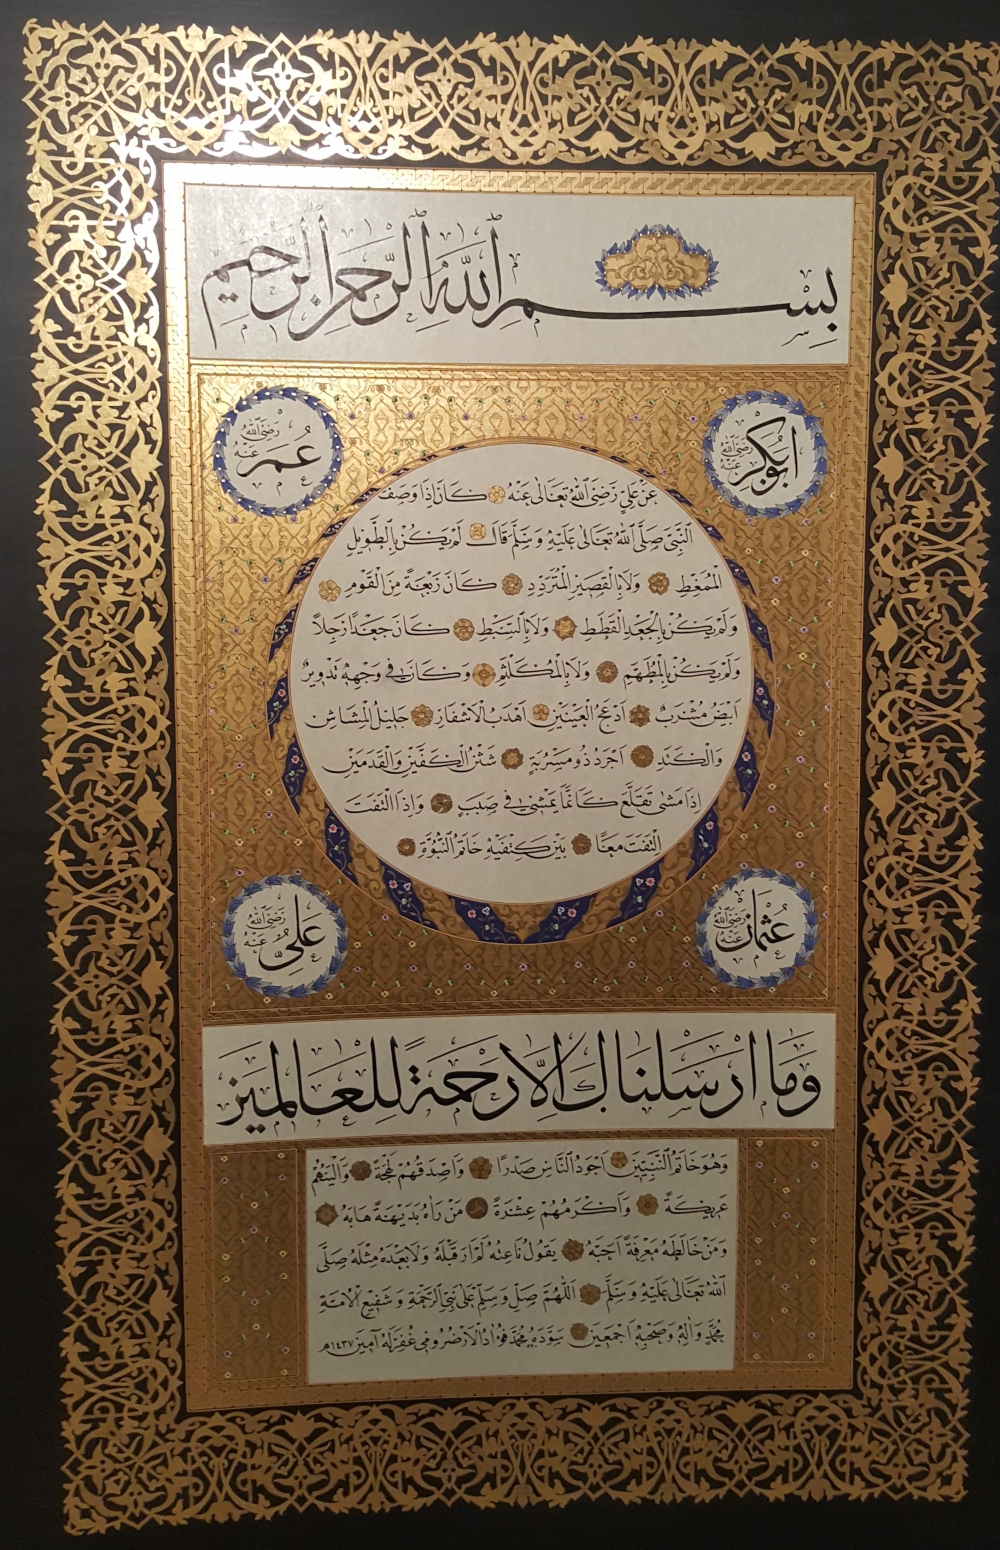 بِسْمِ اللّٰهِ الرَّحْمٰنِ الرَّحِيمِ
ابُو بَكْرٍ رَضِيَ اللّٰهُ عَنْهُ
عُمَرُ رَضِيَ اللّٰهُ عَنْهُ
عَنْ عَلِيٍّ رَضِيَ اللّٰهُ تَعَالٰى عَنْهُ كَانَ اِذَا وَصَفَ
النَّبِيَّ صَلَّى اللّٰهُ تَعَالٰى عَلَيْهِ وَسَلَّمَ قَالَ لَمْ يَكُنْ بِالطَّوِيلِ
الْمُمَّغِطِ وَلَا بِالْقَصِيرِ الْمُتَرَدِّدِ كَانَ رَبْعَةً مِنَ الْقَوْمِ
وَلَمْ يَكُنْ بِالْجَعْدِ الْقَطَطِ وَلَا بِالسَّبْطِ كَانَ جَعْدًا رَجِلًا
وَلَمْ يَكُنْ بِالْمُطَهَّمِ وَلَا بِالْمُكَلْثَمِ وَكَانَ فِي وَجْهِهِ تَدْوِيرٌ
اَبْيَضُ مُشْرَبٌ اَدْعَجُ الْعَيْنَيْنِ اَهْدَبُ الْاَشْفَارِ جَلِيلُ الْمُشَاشِ
وَالْكَتَدِ اَجْرَدُ ذُو مَسْرُبَةٍ شَثْنُ الْكَفَّيْنِ وَالْقَدَمَيْنِ
اِذَا مَشٰى تَقَلَّعَ كَاَنَّمَا يَمْشِي فِي صَبَبٍ وَاِذَا الْتَفَتَ
اِلْتَفَتَ مَعًا بَيْنَ كَتِفَيْهِ خَاتَمُ النُّبُوَّةِ
عُثْمَانُ رَضِيَ اللّٰهُ عَنْهُ
عَلِيٌّ رَضِيَ اللّٰهُ عَنْهُ
وَمَا اَرْسَلْنَاكَ اِلَّا رَحْمَةً لِلْعَالَمِينَ
وَهُوَ خَاتَمُ النَّبِيِّينَ اَجْوَدُ النَّاسِ صَدْرًا وَاَصْدَقُهُمْ لَهْجَةً وَاَلْيَنُهُمْ
عَرِيكَةً وَاَكْرَمُهُمْ عِشْرَةً مَنْ رَاٰهُ بَدِيهَةً هَابَهُ
وَمَنْ خَالَطَهُ مَعْرِفَةً اَحَبَّهُ يَقُولُ نَاعِتُهُ لَمْ اَرَ قَبْلَهُ وَلَا بَعْدَهُ مِثْلَهُ صَلَّى
اللّٰهُ تَعَالٰى عَلَيْهِ وَسَلَّمَ اَللّٰهُمَّ صَلِّ وَسَلِّمْ عَلٰى نَبِيِّ الرَّحْمَةِ وَشَفِيعِ الْاُمَّةِ
مُحَمَّدٍ وَاٰلِهِ وَصَحْبِهِ اَجْمَعِينَ سَوَّدَهُ مُحَمَّد فُؤَاد الْاَرْضُرُومِي غُفِرَ لَهُ اٰمِين ١٤٣٧هـ